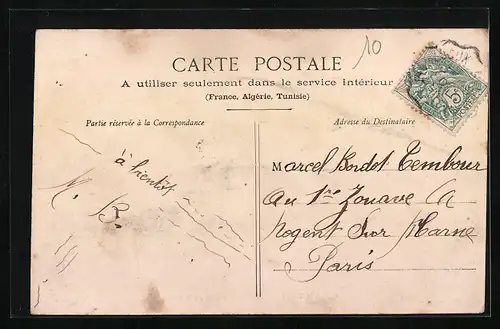 10
CARTE POSTALE
A utiliser seulement dans le service intérieur
(France, Algérie, Tunisie)
Partie réservée à la Correspondance
Adresse du Destinataire
à bientôt
M. B.
5
Marcel Bordet Tembour
au 1re Zouave
Nogent Sur Marne
Paris